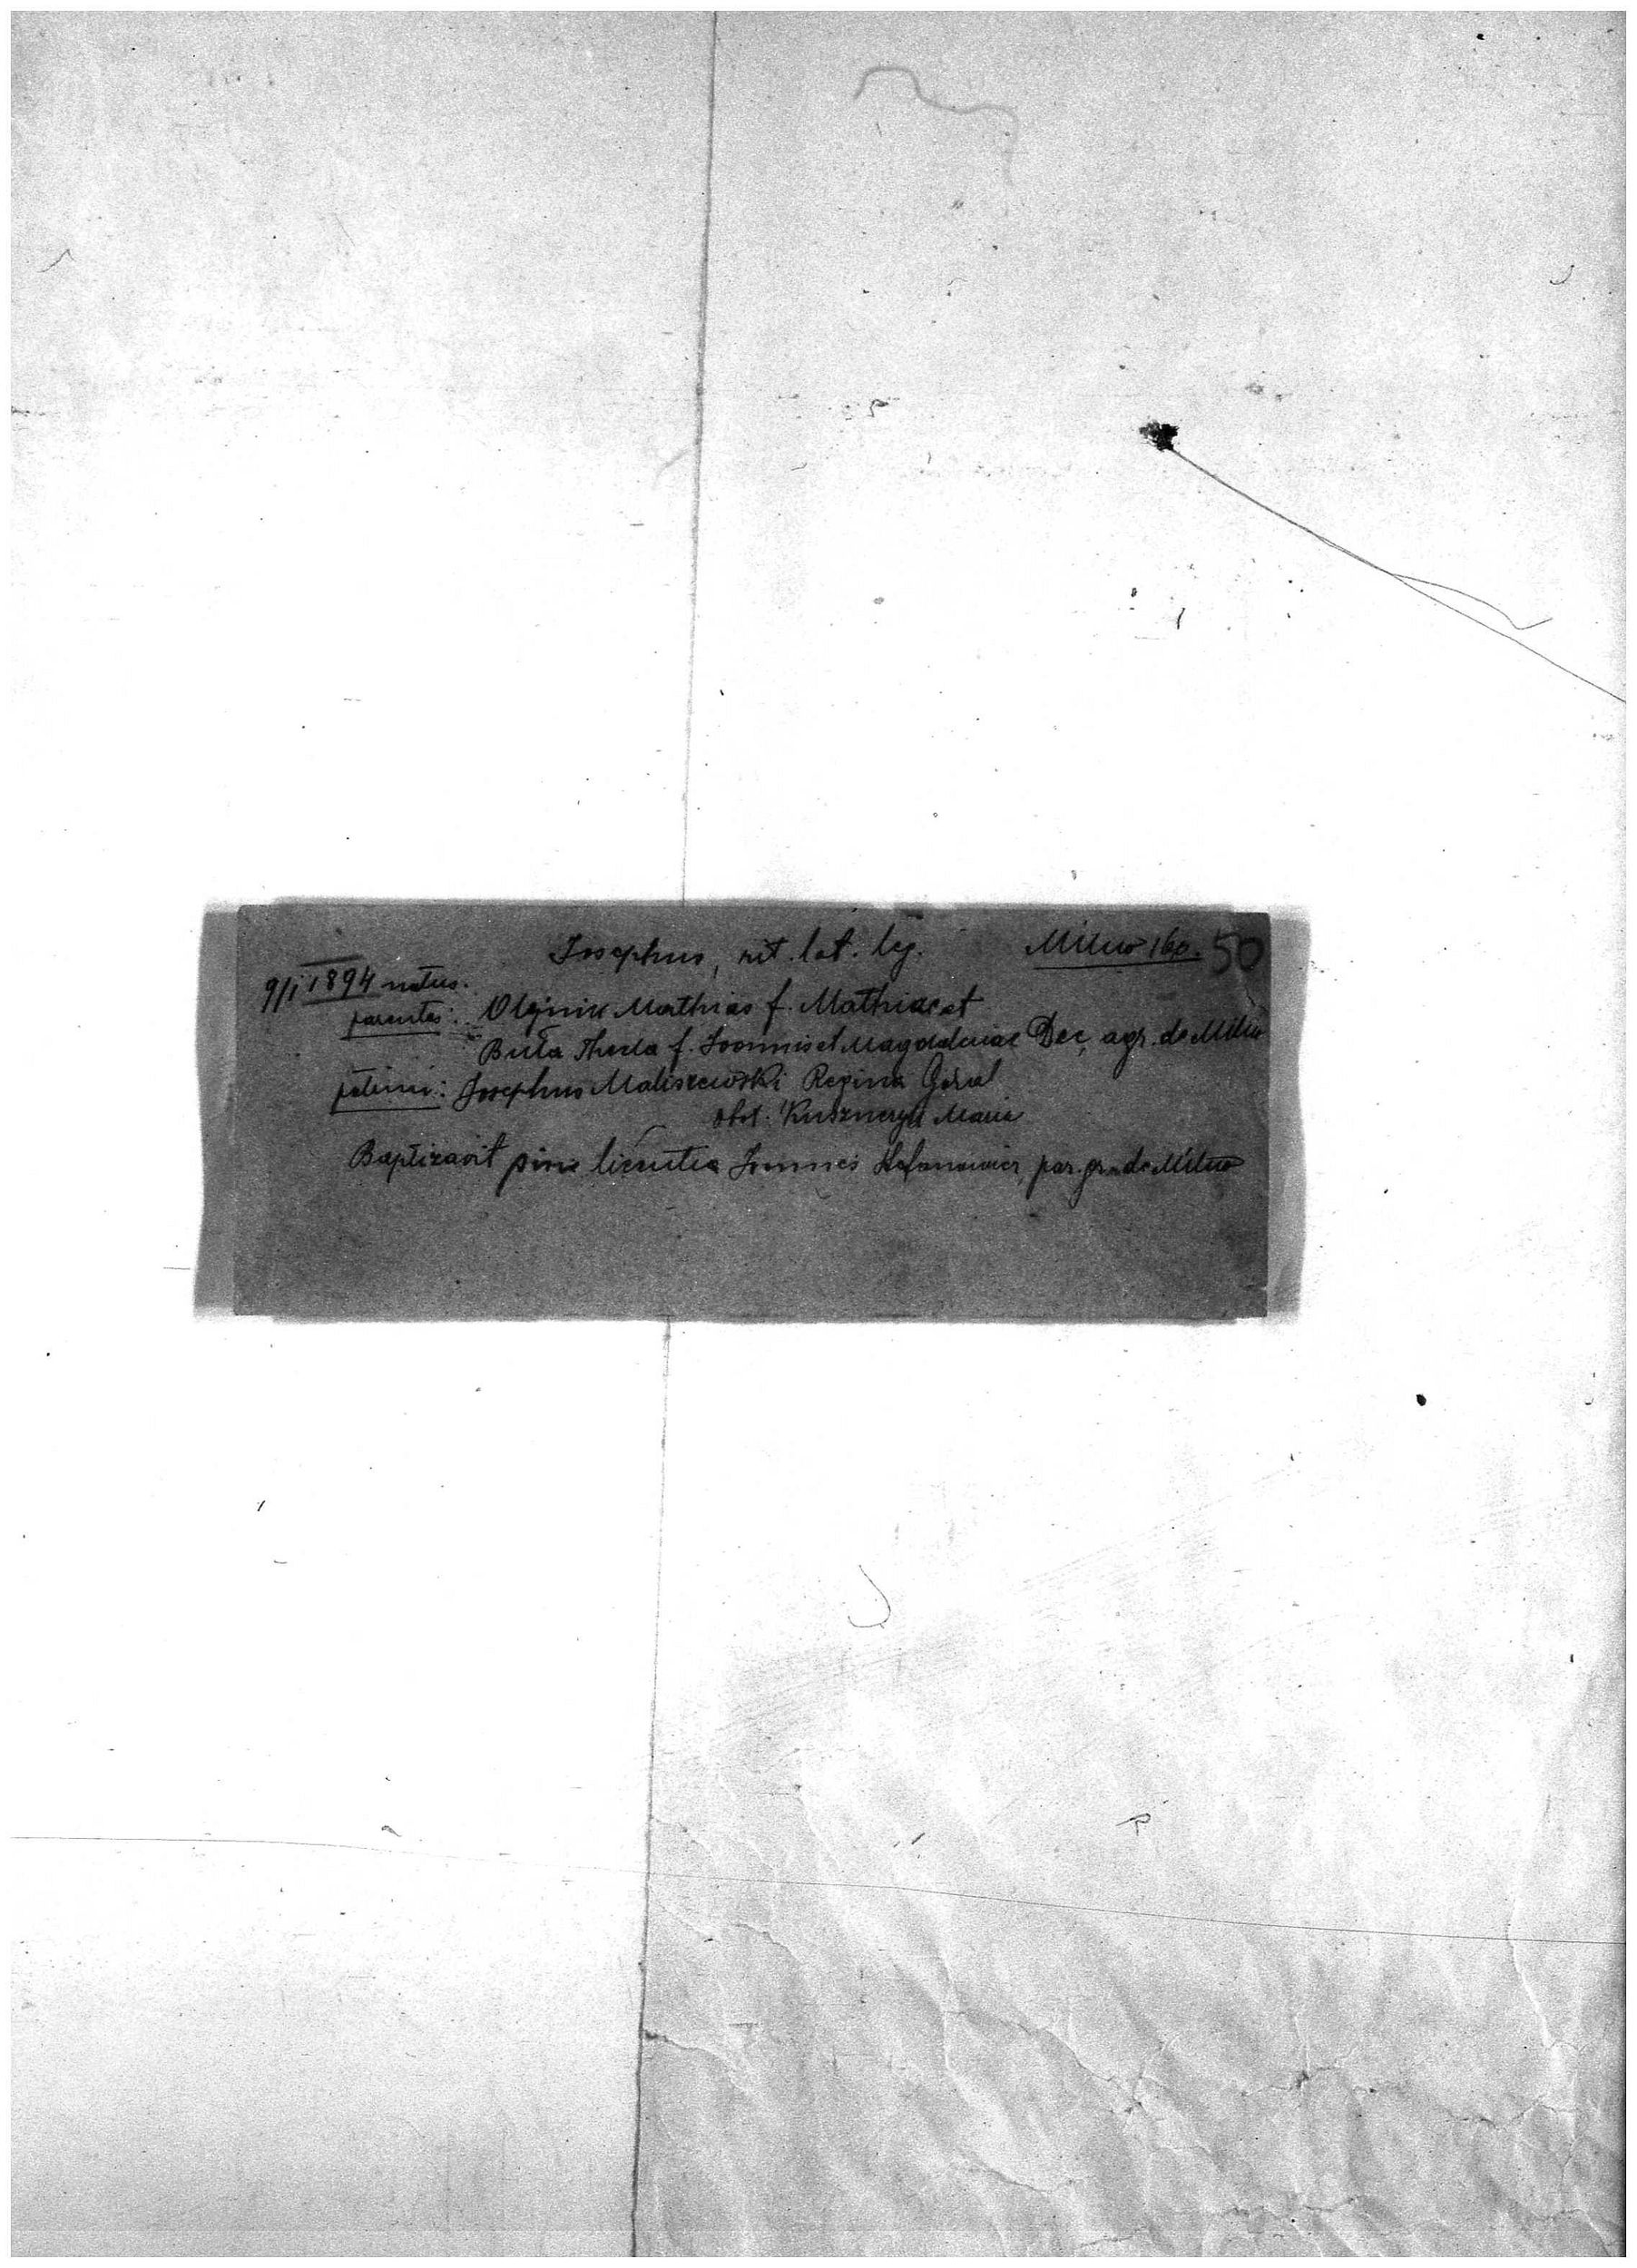 Josephus, rit. lat. leg. Milno 160. 50
9/I 1894 natus.
parentes: Olejnik Mathias f. Mathiae et
Buła Thecla f. Joannis et Magdalenae Dec, agr. de Milno
patrini: Josephus Maliszewski Regina Góral
obst. Kuszneryk Maria
Baptizavit sine licentia Joannes Stefanowicz, par. gr. de Milno